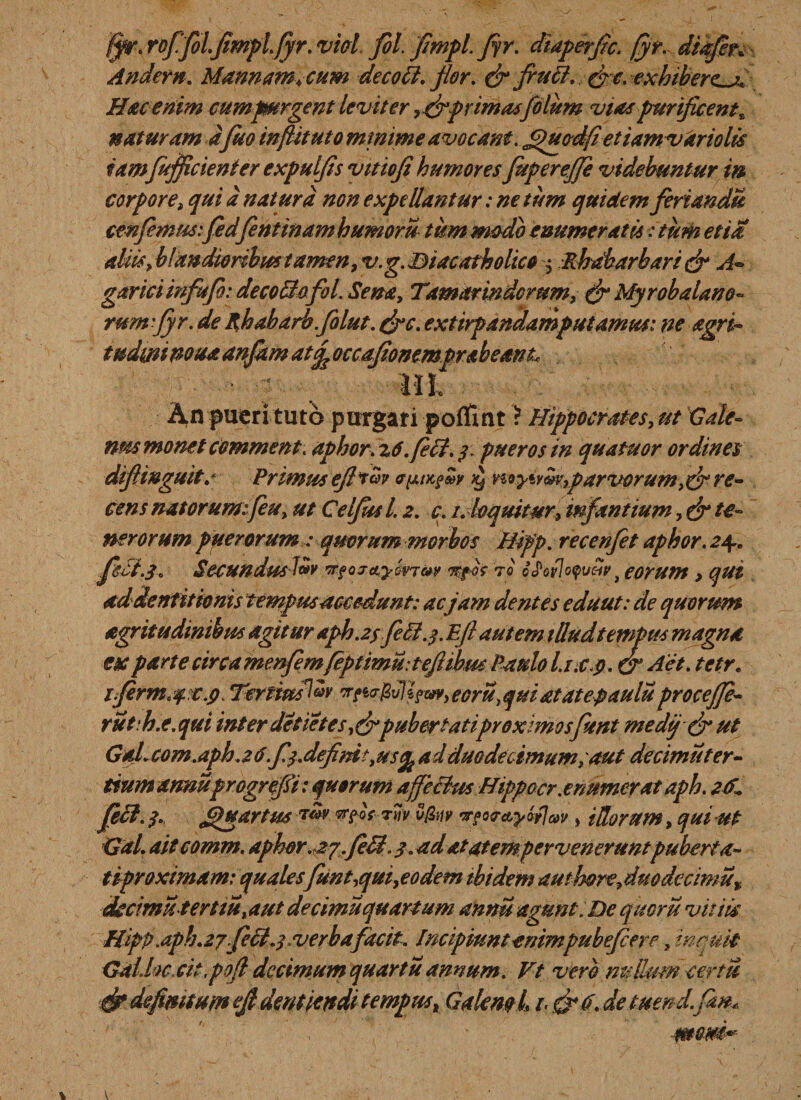 ſyr. roſ. ſol. ſimpl. ſyr. viol. ſol. ſimpl. ſyr. diaperſic. ſyr. diaſer.
Andern. Mannam, cum decoct. flor. & fruct. &c. exhibere.
Hæc enim cum purgent leviter, & primas ſolùm vias purificent,
naturam à ſuo inſtituto minime avocant. Quodſi etiam variolis
iam ſufficienter expulſis vitioſi humores ſupereſſe videbuntur in
corpore, qui à naturà non expellantur: ne tùm quidem feriandū
cenſemus: ſed ſentinam humorū tùm modò enumeratis: tùm etiã
aliis, blandioribus tamen, v.g. Diacatholico; Rhabarbari & A-
garici infuſo: decocto fol. Senæ, Tamarindorum, & Myrobalano-
rum: ſyr. de Rhabarb. ſolut. &c. extirpandam putamus: ne ægri-
tudini novæ anſam atq̃ occaſionem præbeant.
III.
An pueri tutò purgari poſſint? Hippocrates, ut Gale-
nus monet comment. aphor. 26. ſect. 3. pueros in quatuor ordines
diſtinguit. Primus eſt τῶν σμικρῶν κ̀ νεογενῶν, parvorum, & re-
cens natorum: ſeu, ut Celſus l. 2. c. 1. loquitur, infantium, & te-
nerorum puerorum: quorum morbos Hipp. recenſet aphor. 24.
ſect. 3. Secundus τῶν προσαγόντων πρὸς τὸ ὀδοντοφυεῖν, eorum, qui
ad dentitionis tempus accedunt: ac jam dentes edunt: de quorum
ægritudinibus agitur aph. 25 ſect. 3. Eſt autem illud tempus magnâ
ex parte circa menſem ſeptimū: teſtibus Paulo l. 1. c. 9. & Aët. tetr.
1. ſerm. 4. c. 9. Tertius τῶν πρεσβυτέρων, eorū, qui ætate paulū proceſſe-
rūt: h.e. qui inter dẽtiẽtes, & pubertati proximos ſunt medij & ut
Gal. com. aph. 26. ſ. 3. definit, uſq̃ ad duodecimum, aut decimūter-
tium annū progreſsi: quorum affectus Hippocr. enumerat aph. 26.
ſect. 3. Quartus τῶν πρὸς τὴν ὕβην προσαγόντων, illorum, qui ut
Gal. ait comm. aphor. 27. ſect. 3. ad ætatem pervenerunt puberta-
ti proximam: quales ſunt, qui, eodem ibidem authore, duodecimū,
decimū tertiū, aut decimū quartum annū agunt. De quorū vitiis
Hipp. aph. 27 ſect. 3. verba facit. Incipiunt enim pubeſcere, inquit
Gal. loc. cit. poſt decimum quartū annum. Vt verò nullum certū
& definitum eſt dentiendi tempus, Galeno l. 1. & 6. de tuend. ſan.
moni-